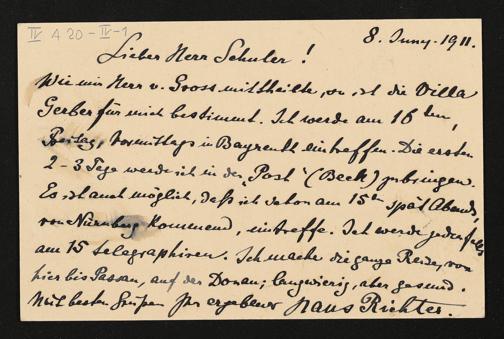 IV A 20 - IV - 1
8. Juny. 1911.
Lieber Herr Schuler!
Wie mir Herr v. Gross mittheilte, ist die Villa
Gerber für mich bestimmt. Ich werde am 16ten,
Freitag, Vormittags in Bayreuth eintreffen. Die ersten
2-3 Tage werde ich in der "Post" (Beck) zubringen.
Es ist auch möglich, daß ich schon am 15ten spät Abends,
von Nürnberg kommend, eintreffe. Ich werde jedenfalls
am 15 telegraphiren. Ich mache die ganze Reise, von
hier bis Passau, auf der Donau; langwierig, aber gesund.
Mit besten Grüßen Ihr ergebener Hans Richter.